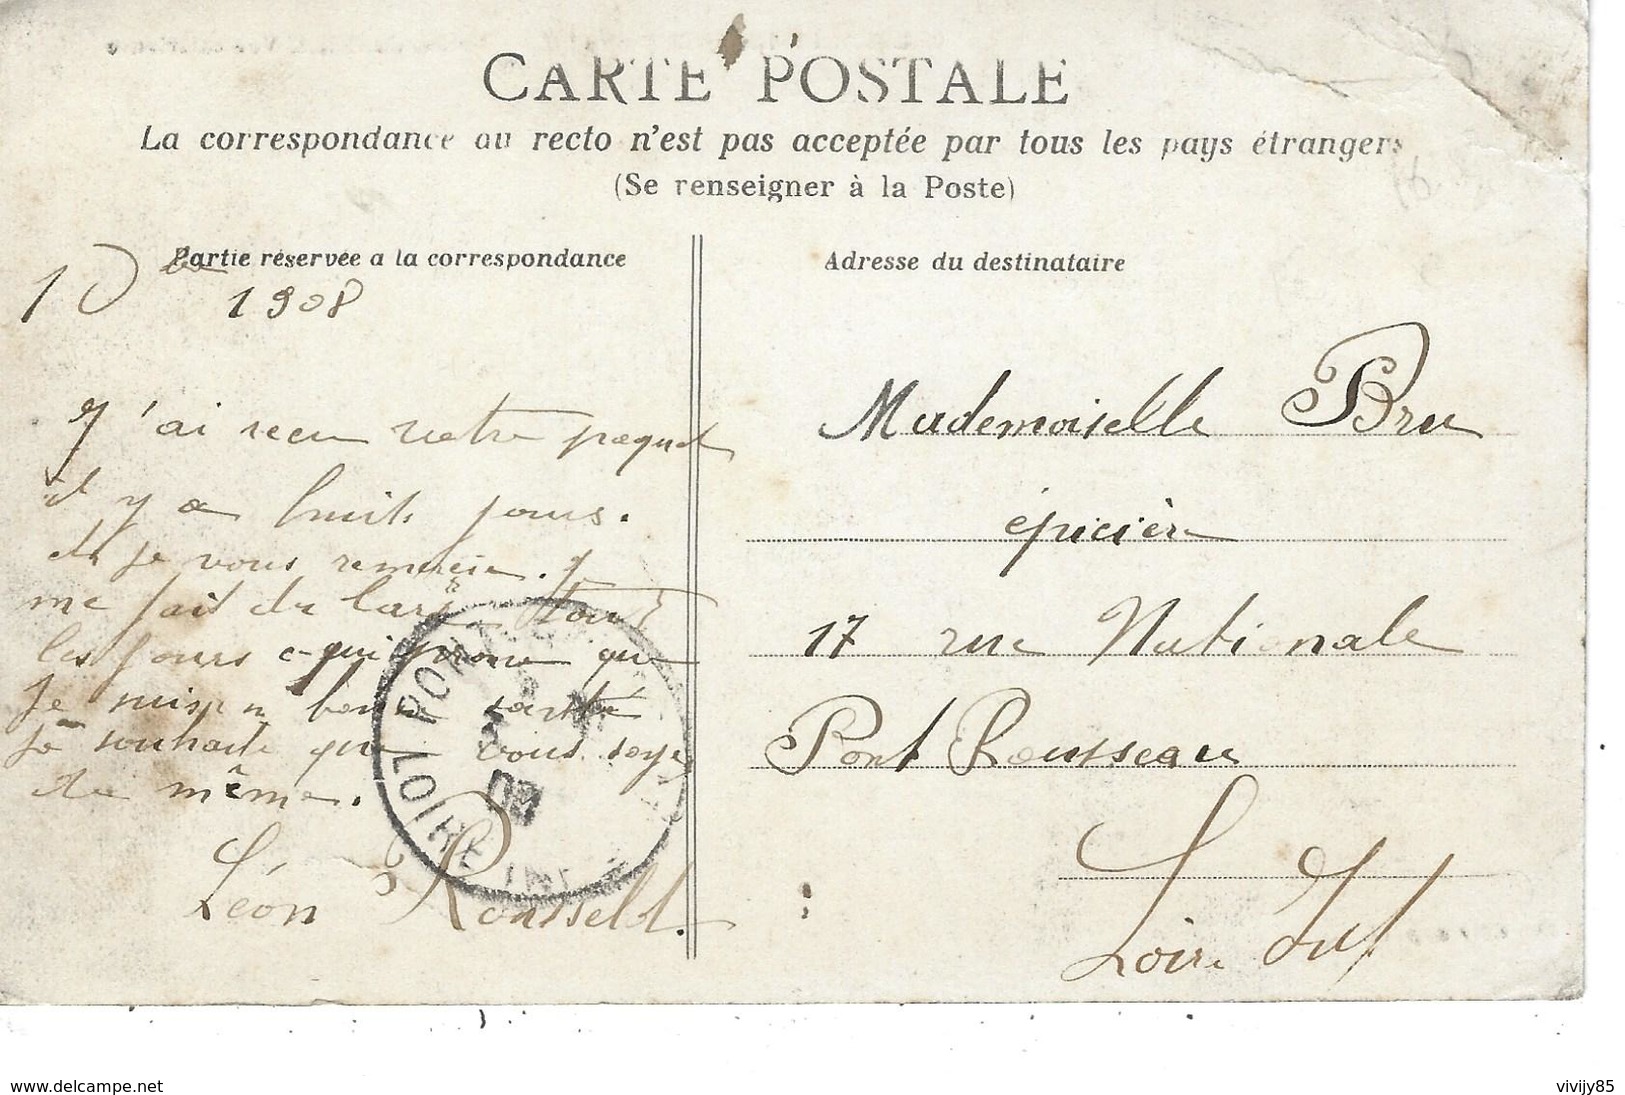 CARTE POSTALE
La correspondance au recto n'est pas acceptée par tous les pays étrangers
(Se renseigner à la Poste)
Partie réservée a la correspondance
1 Dbre
1908
J'ai recu votre paquet
il y a huit jours.
et je vous remercie. Je
me fait du lard tout
les jours c-qui prouve que
je suis en bonne santé
je souhaite que vous soyez
de même.
Léon Rousselot.
Adresse du destinataire
Mademoiselle Bru
épicière
17 rue Nationale
Pont Rousseau
Loire Inf
PONT
LOIRE INF
08
www.delcampe.net
vivijy85